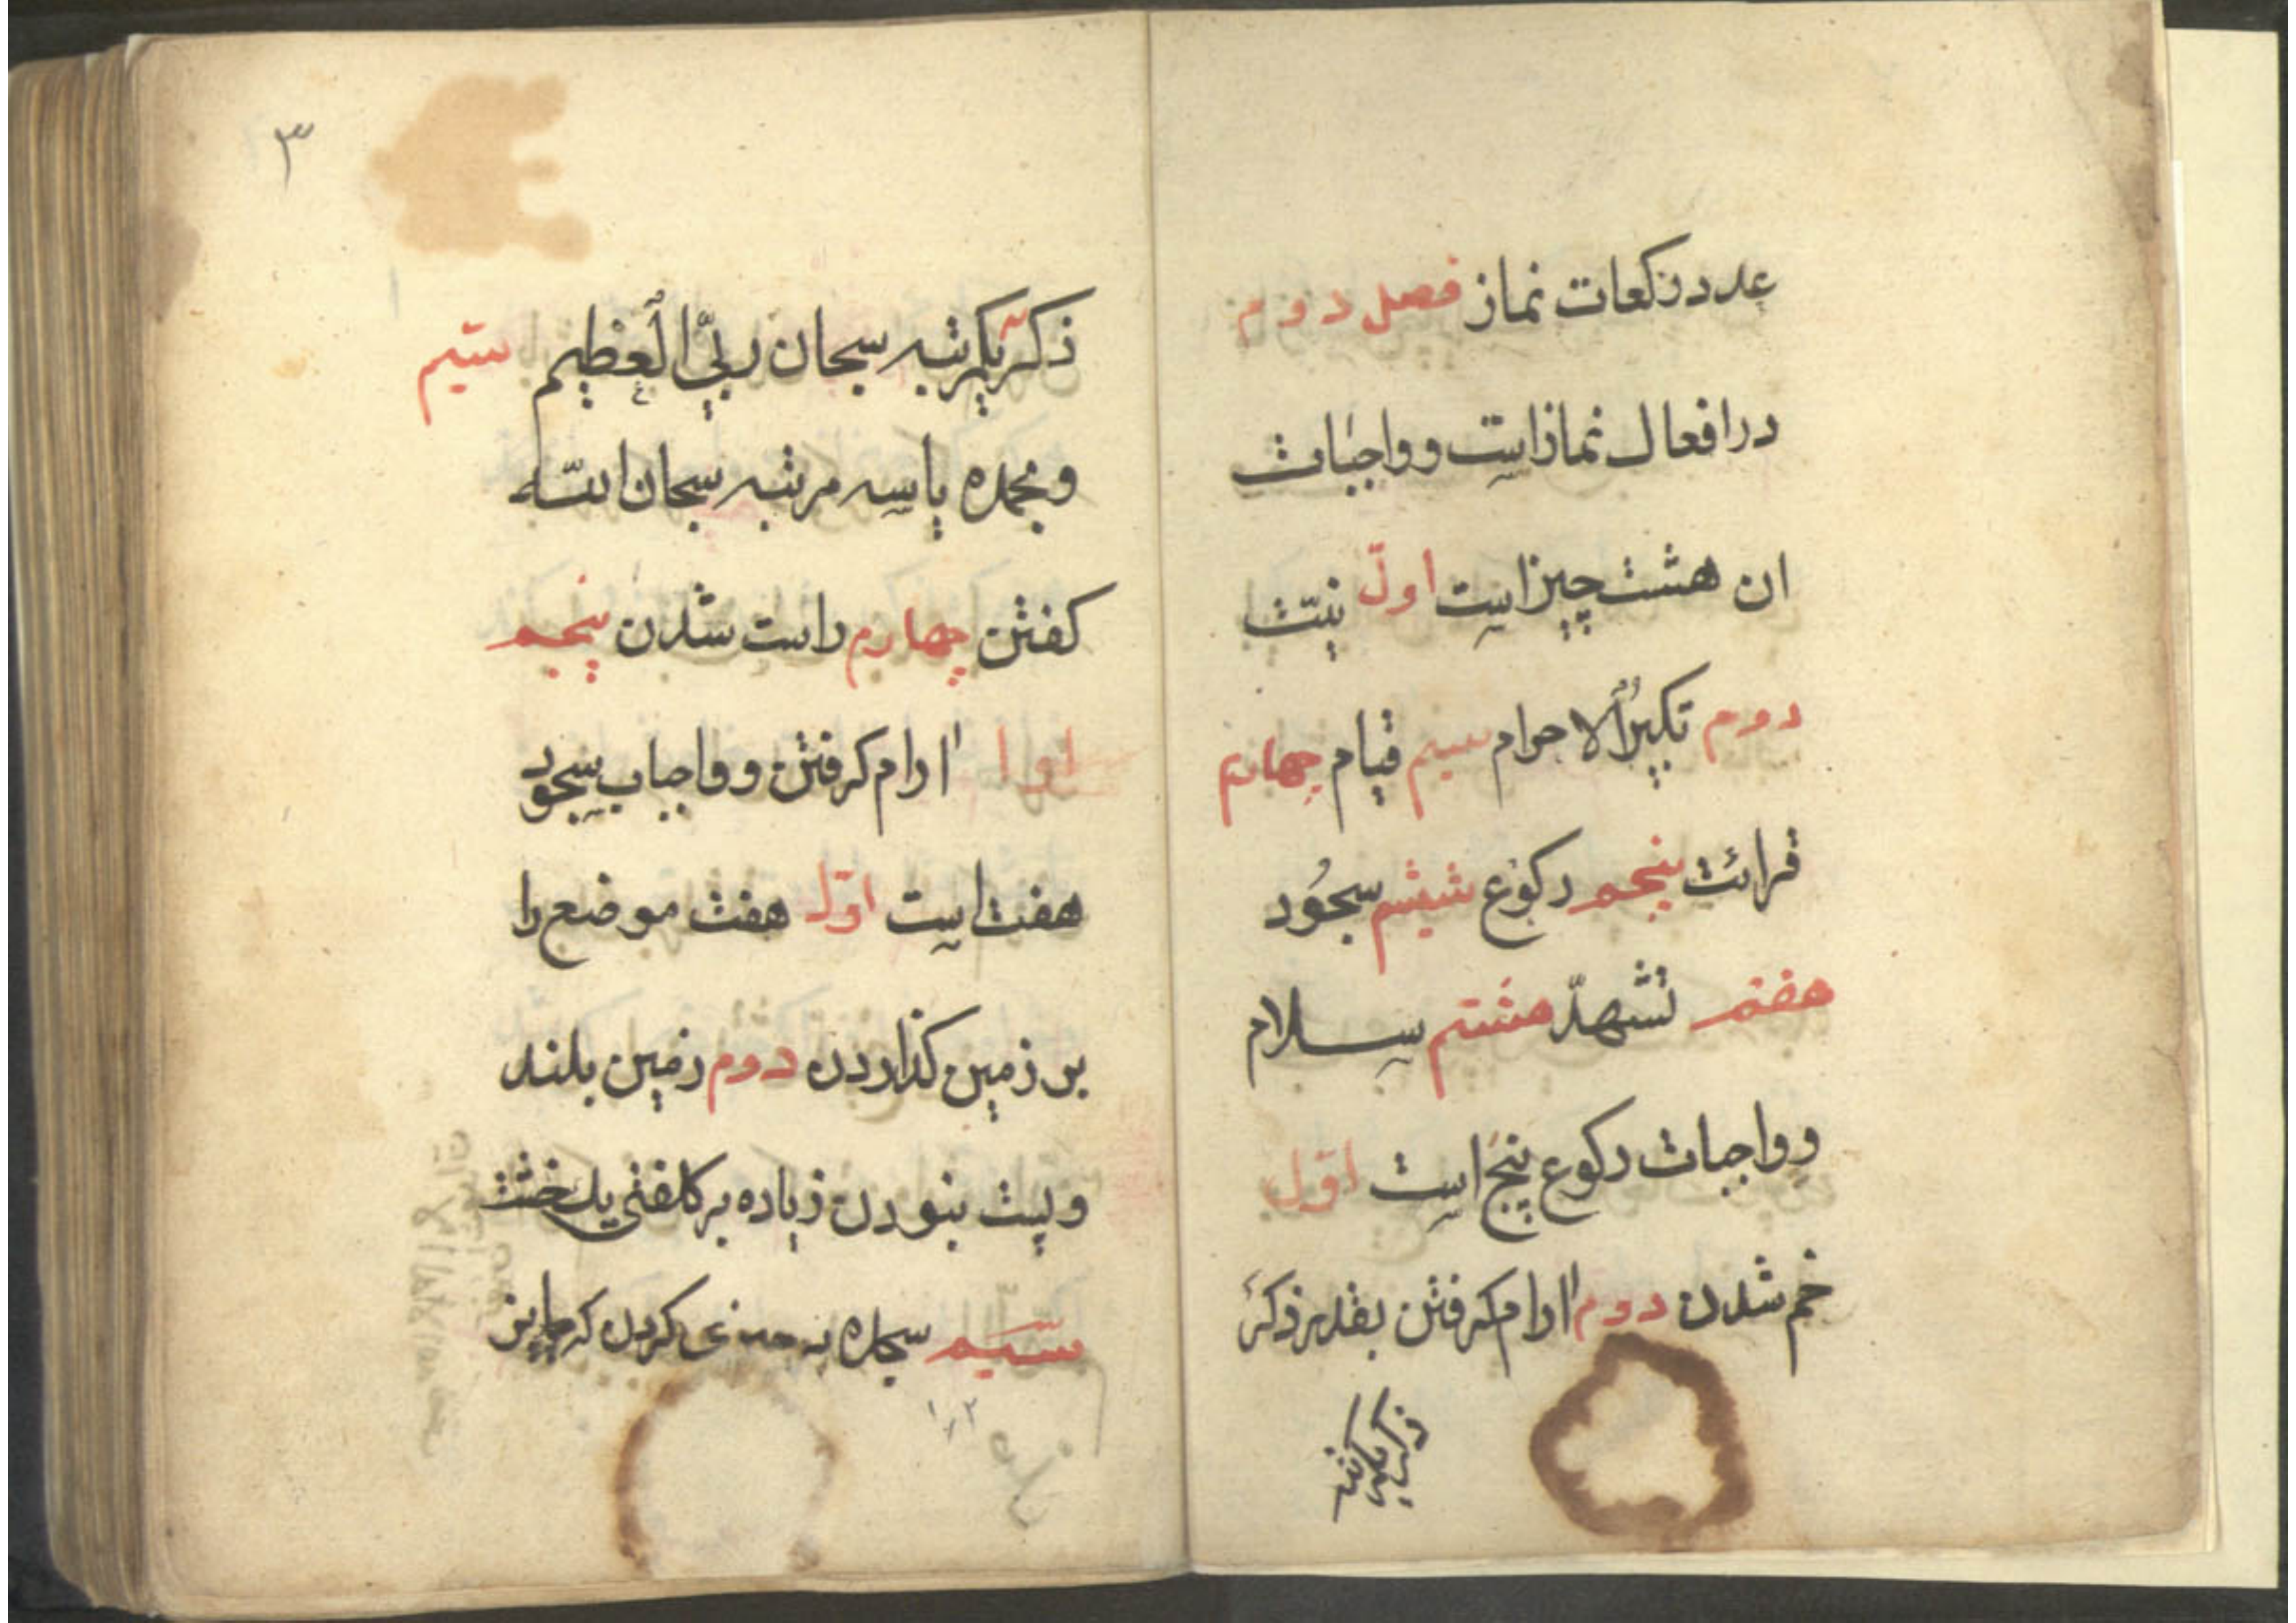 عدد رکعات نماز فصل دوم
در افعال نماز است و واجبات
ان هشت چیز است اول نیّت
دوم تکبیرُ الاحرام سیم قیام چهارم
قرائت پنجم رکوع ششم سجُود
هفتم تشهدّ هشتم سلام
و واجبات رکوع پنج است اوّل
خم شدن دوم اارام کرفتن بقدر ذکر
ذکر یکمرتبه
۳
ذکر یکمرتبه سبحان ربیّ العظیم ستیم
وبحمده یا سه مرتبه سبحان الله
کفتن چهارم راست شدن پنجم
اارام کرفتن و واجبات سجود
هفت است اوّل هفت موضع را
بر زمین کذاردن دوم زمین بلند
و پست نبودن زیاده بر کلفتی یک خشت
سیّم سجده به کردن که